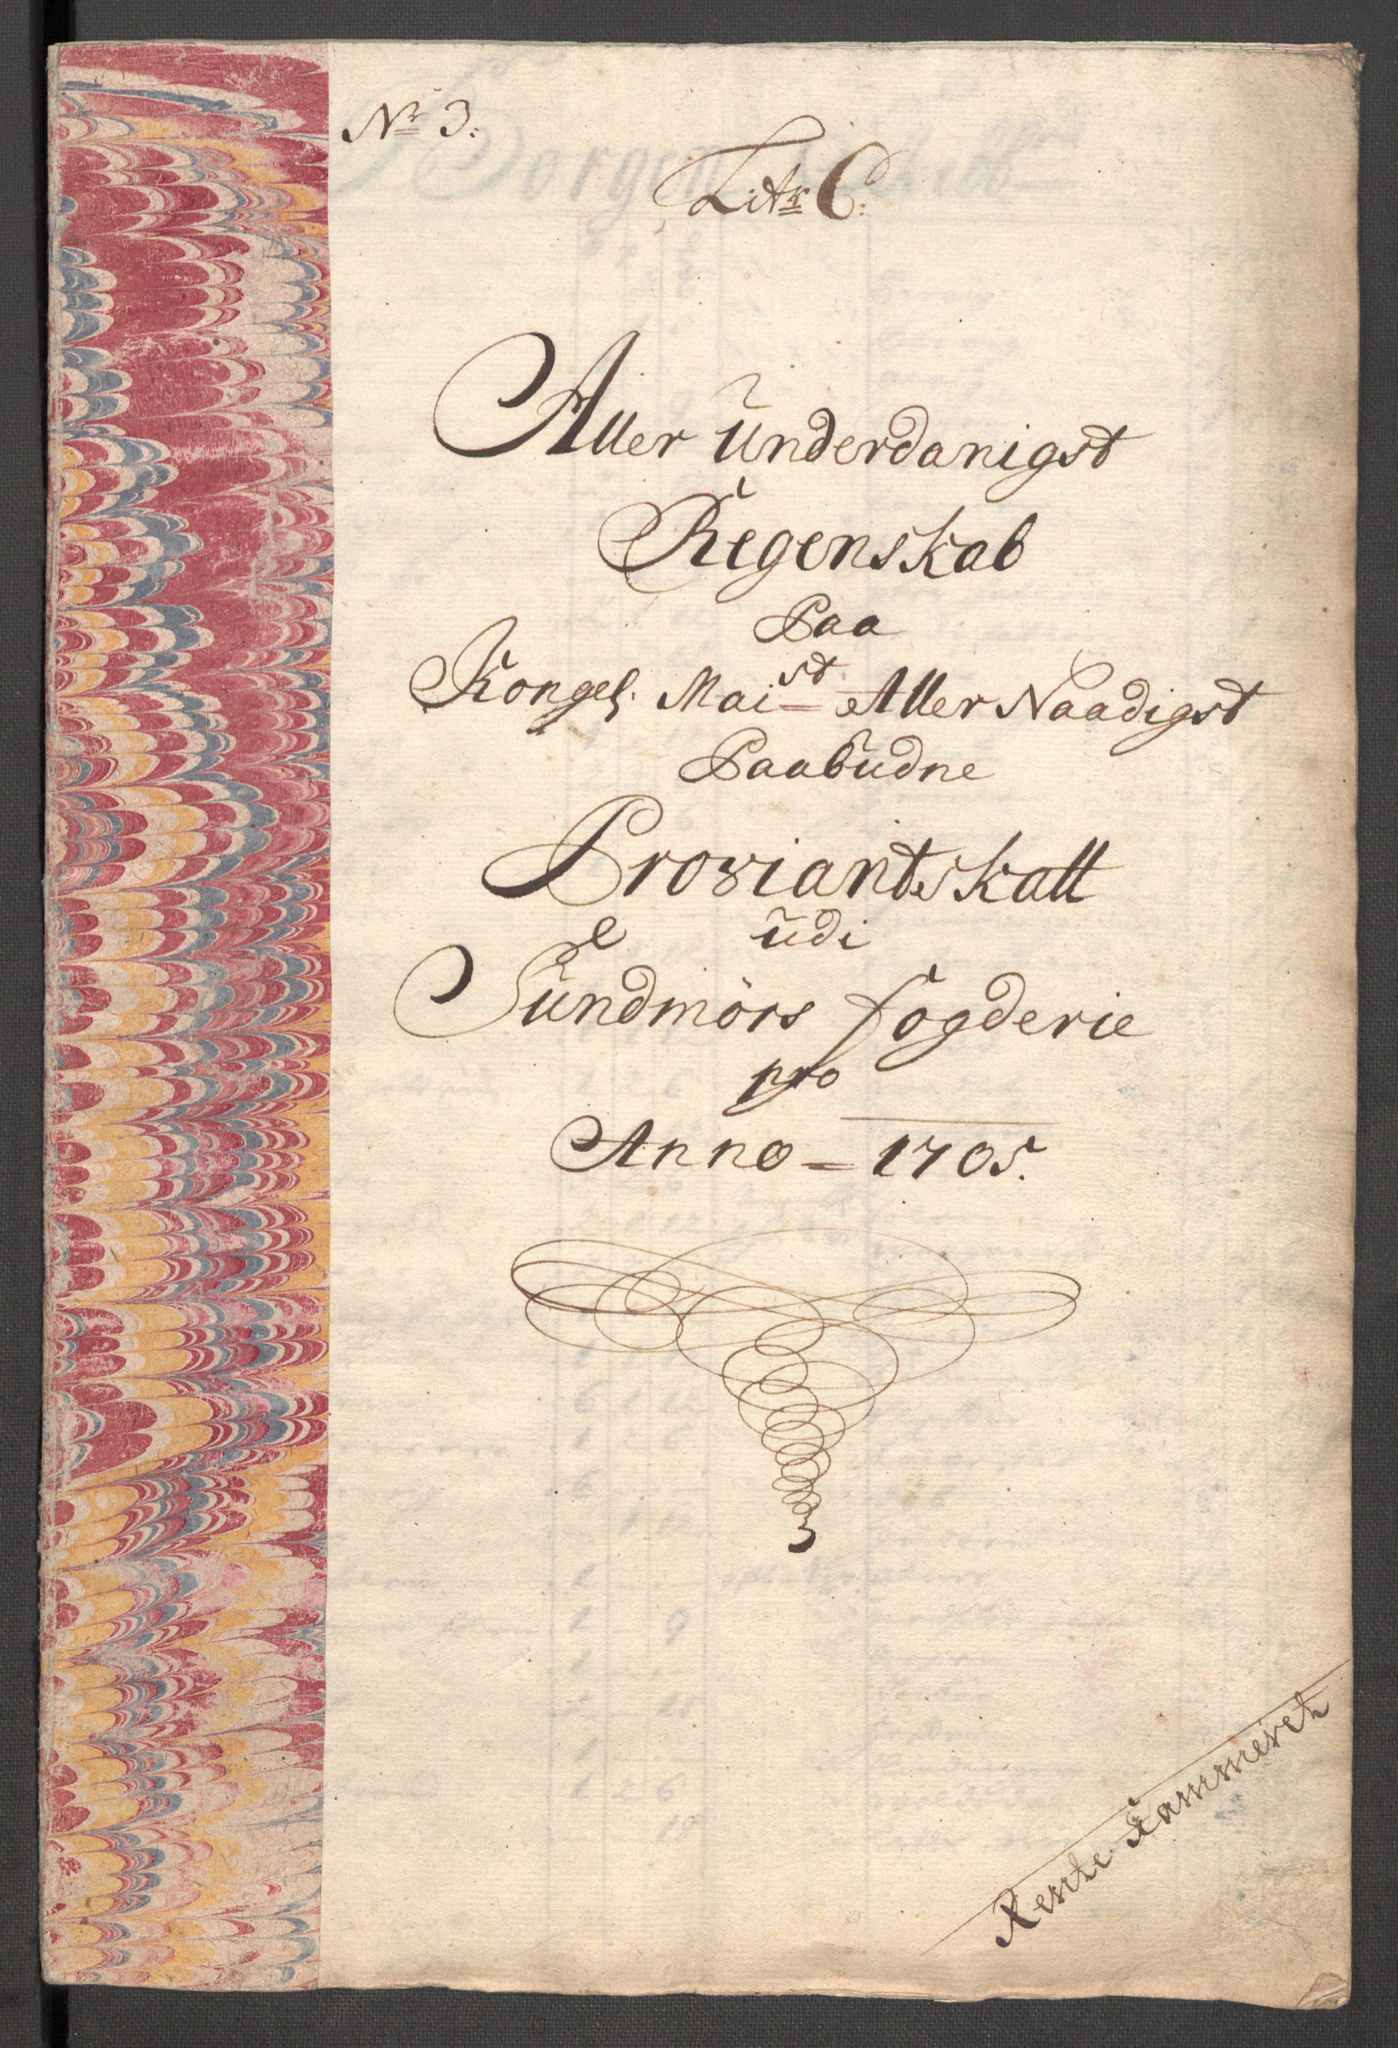 No 3.
Litr C:
Aller underdanigst
Regenskab
Paa
Kongel. Maist Aller Naadigst
Paabudne
Proviantskatt
udi
Sundmörs fogderie
pro
Anno = 1705.
Rente Kammeret